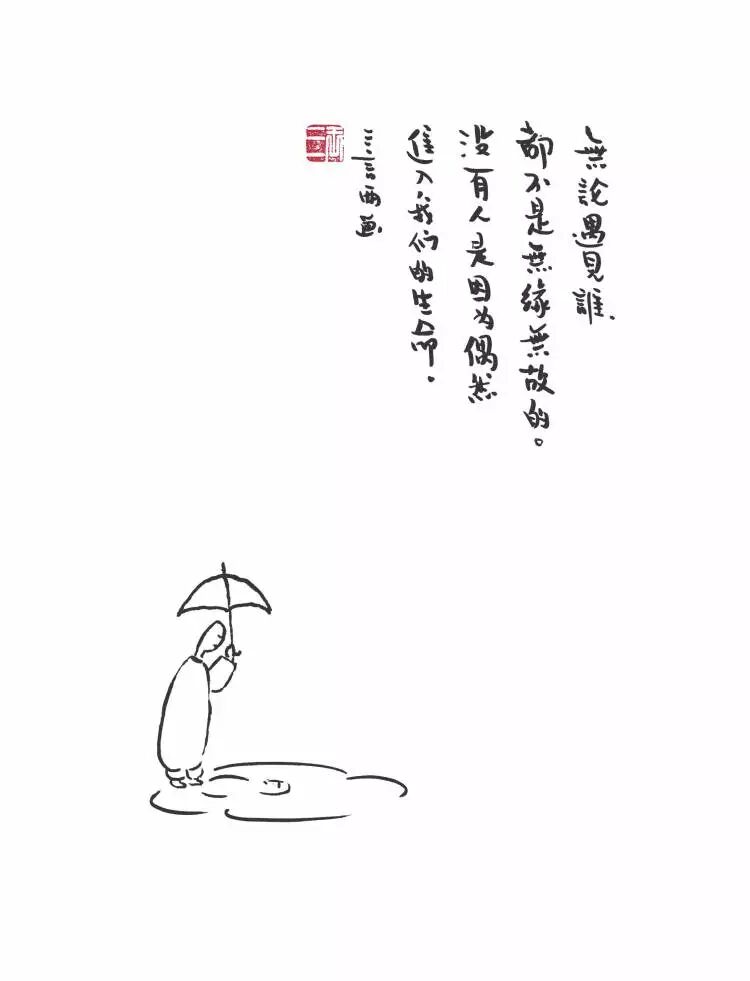 無論遇見誰
都不是無緣無故的。
没有人是因为偶然
進入我们的生命。
三言两画